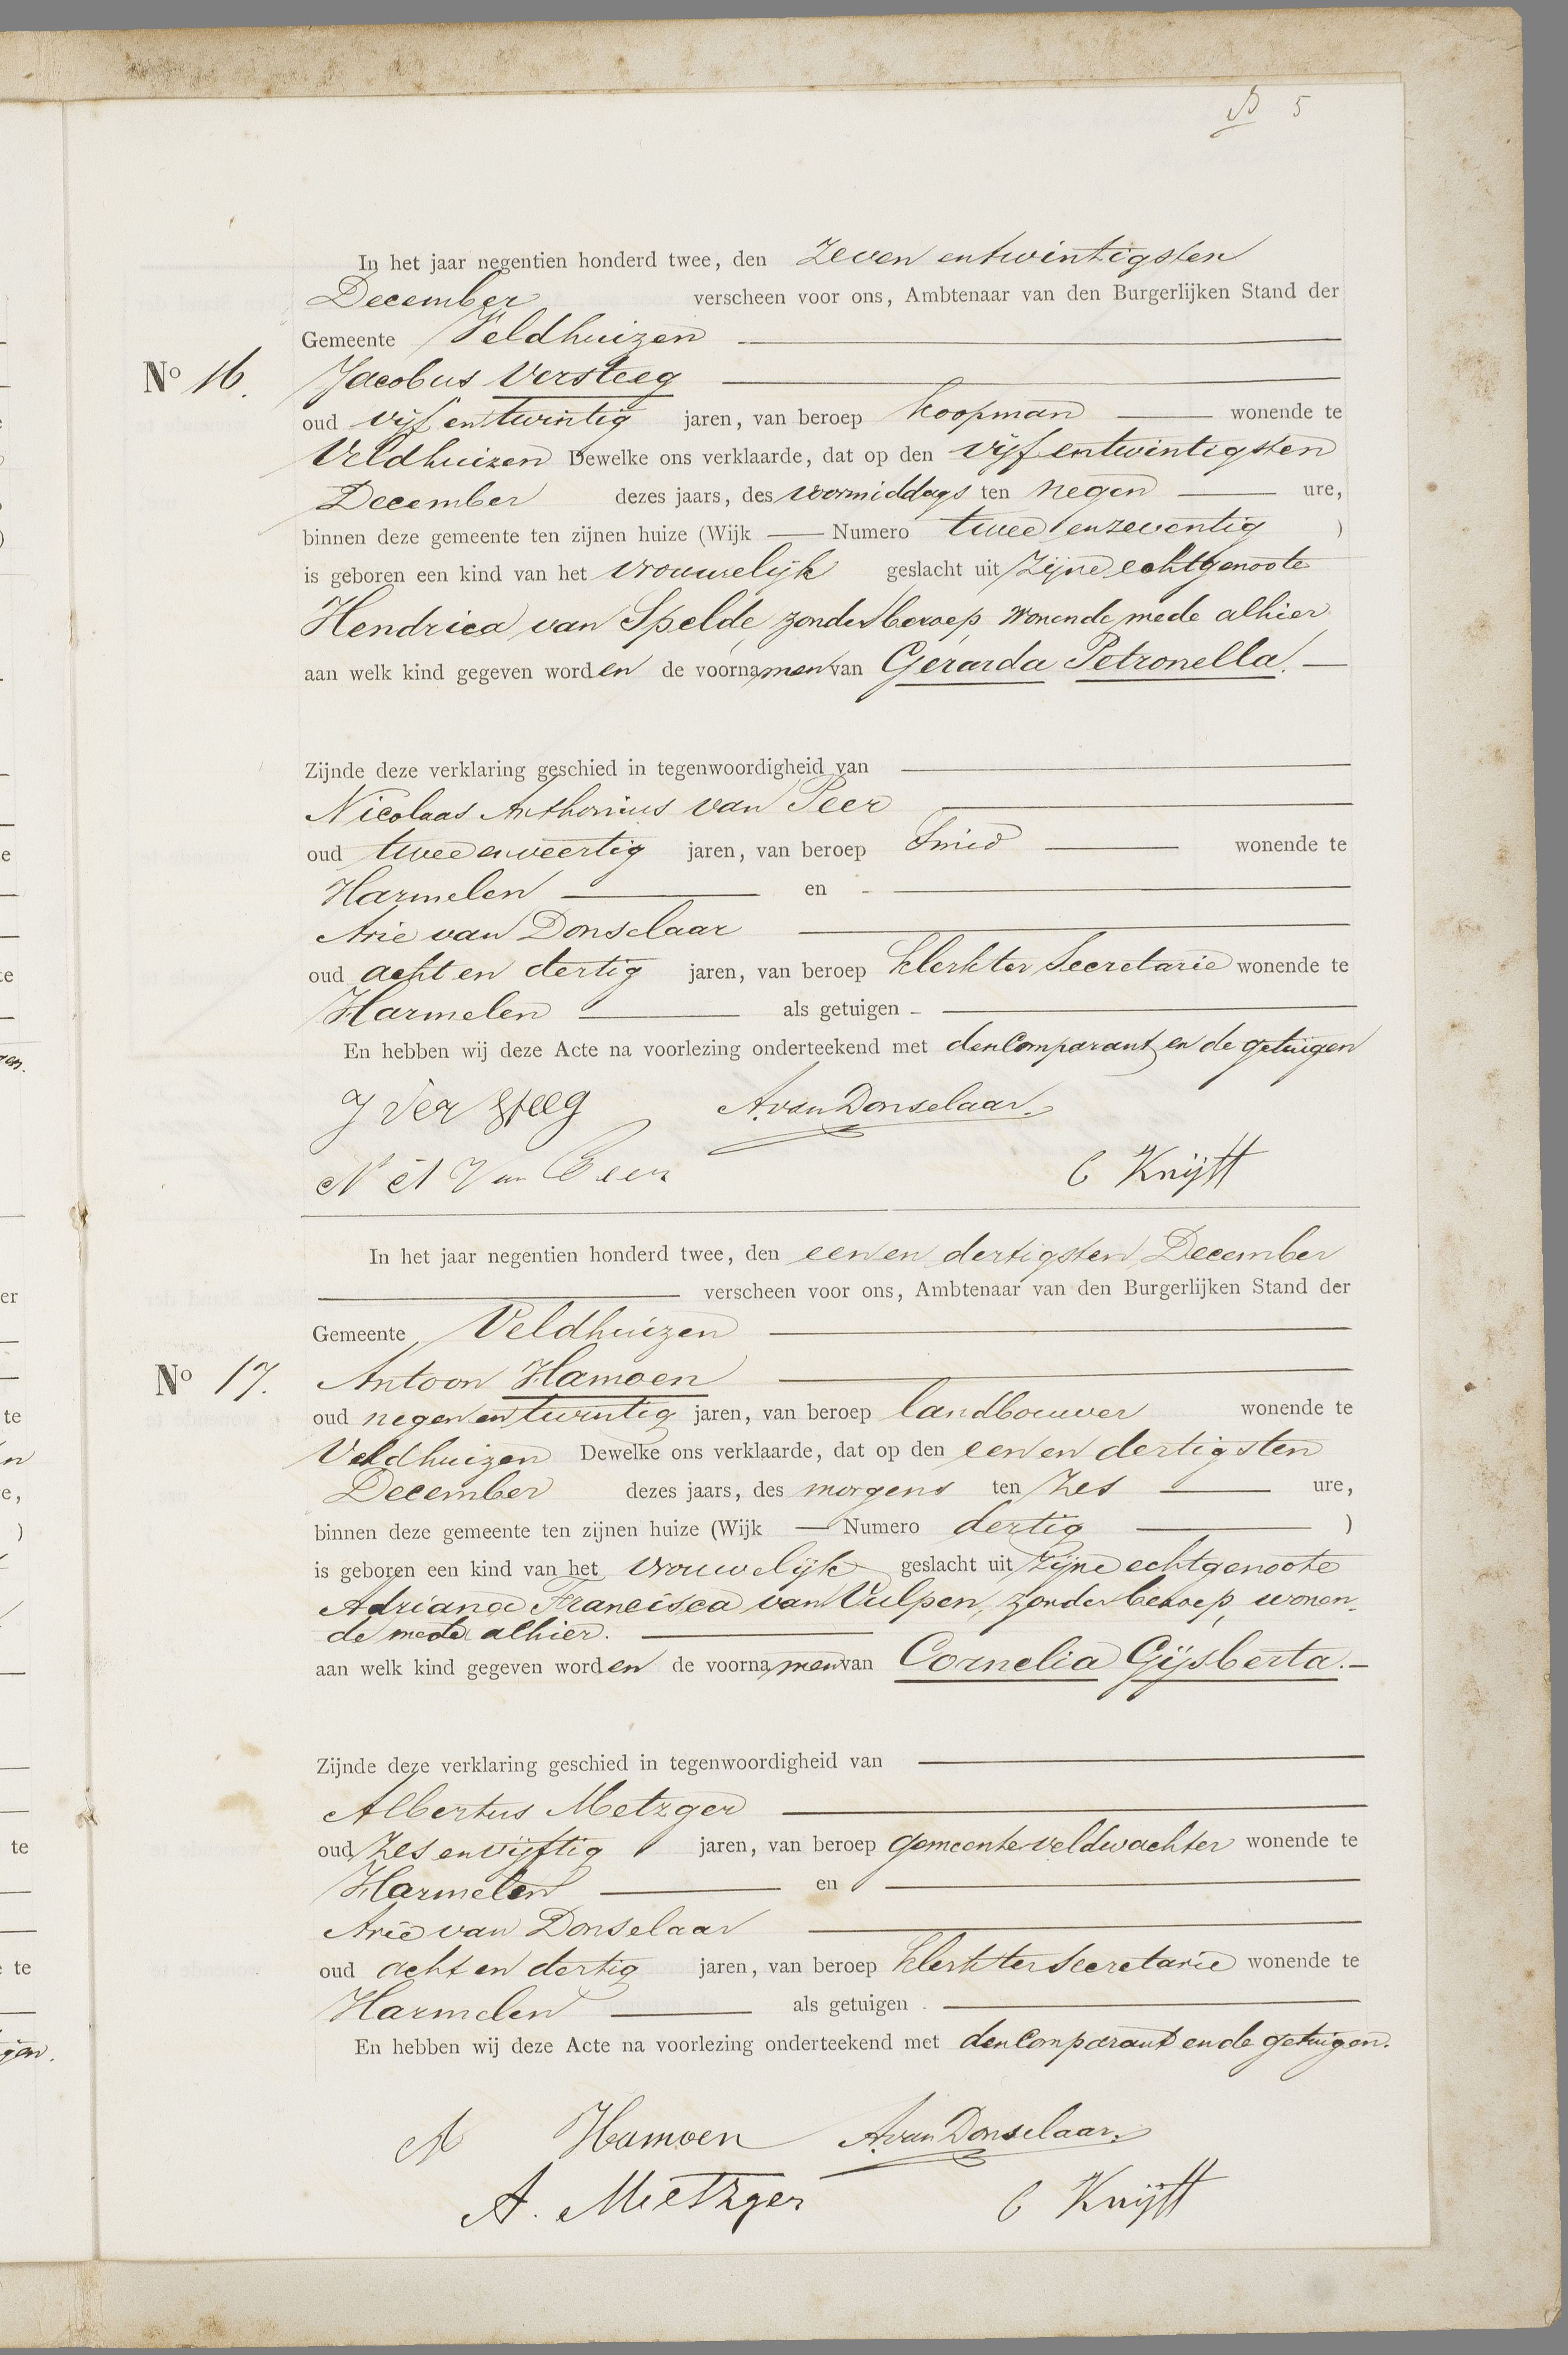 5
In het jaar negentien honderd twee, den Zeven entwintigsten
December verscheen voor ons, Ambtenaar van den Burgerlijken Stand der
Gemeente Veldhuizen
No 16. Jacobus Versteeg
oud vijf en twintig jaren, van beroep koopman wonende te
Veldhuizen Dewelke ons verklaarde, dat op den vijf entwintigsten
December dezes jaars, des voormiddags ten negen ure,
binnen deze gemeente ten zijnen huize (Wijk — Numero twee enzeventig )
is geboren een kind van het vrouwelijk geslacht uit Zijne echtgenoote
Hendrica van Spelde, zonder beroep, wonende mede alhier
aan welk kind gegeven worden de voornamen van Gerarda Petronella.
Zijnde deze verklaring geschied in tegenwoordigheid van
Nicolaas Anthonius van Peer
oud twee enveertig jaren, van beroep Smid wonende te
Harmelen en
Arie van Donselaar
oud acht en dertig jaren, van beroep klerk ter Secretarie wonende te
Harmelen als getuigen
En hebben wij deze Acte na voorlezing onderteekend met den Comparant en de getuigen
J Ver Steeg A. van Donselaar.
N A Van Peer C Knijff
In het jaar negentien honderd twee, den een en dertigsten December
verscheen voor ons, Ambtenaar van den Burgerlijken Stand der
Gemeente Veldhuizen
No 17. Antoon Hamoen
oud negen en twintig jaren, van beroep landbouwer wonende te
Veldhuizen Dewelke ons verklaarde, dat op den een en dertigsten
December dezes jaars, des morgens ten Zes ure,
binnen deze gemeente ten zijnen huize (Wijk — Numero dertig )
is geboren een kind van het vrouwelijk geslacht uit Zijne echtgenoote
Adriana Francisca van Vulpen, zonder beroep, wonen-
de mede alhier.
aan welk kind gegeven worden de voornamen van Cornelia Gijsberta.
Zijnde deze verklaring geschied in tegenwoordigheid van
Albertus Metzger
oud Zes en vijftig jaren, van beroep gemeenteveldwachter wonende te
Harmelen en
Arie van Donselaar
oud acht en dertig jaren, van beroep klerk ter Secretarie wonende te
Harmelen als getuigen
En hebben wij deze Acte na voorlezing onderteekend met den Comparant en de getuigen.
A Hamoen A. van Donselaar.
A. Metzger C Knijff